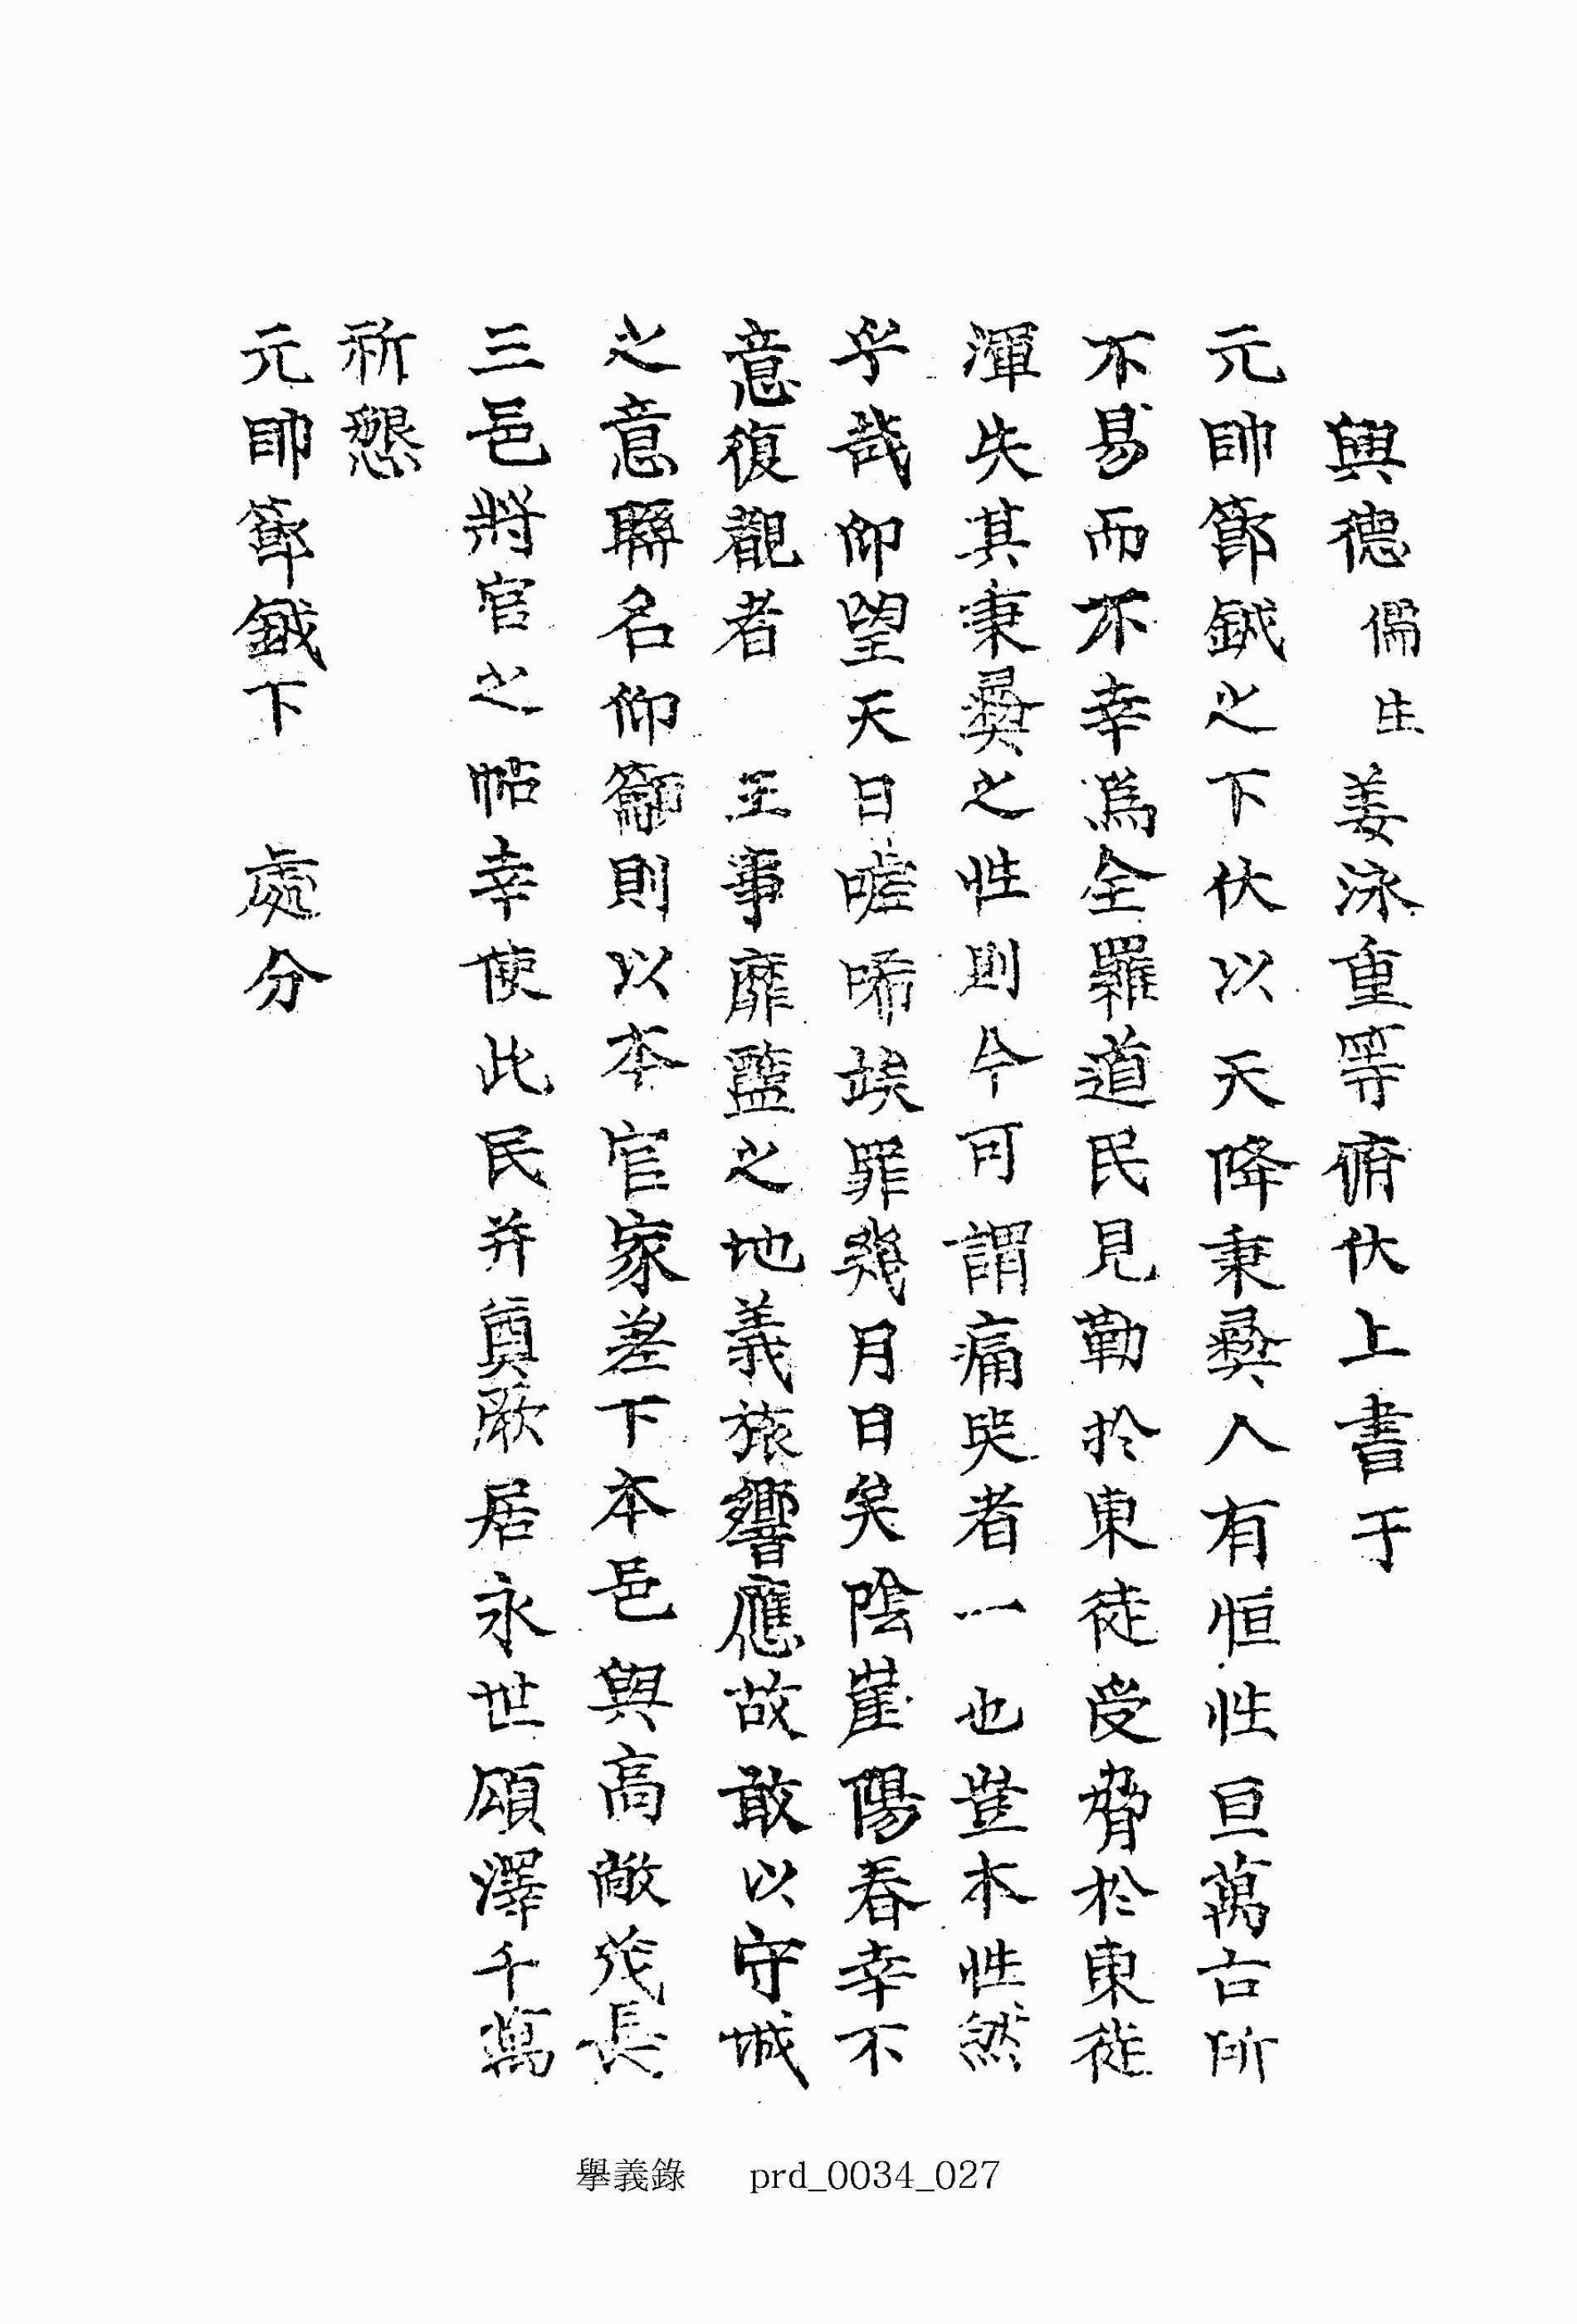 興德 儒生 姜泳重等俯伏上書于
元帥節鉞之下伏以天降秉彝人有恒性亘萬古所
不易而不幸爲全羅道民見勒於東徒受脅於東徒
渾失其秉彝之性則今可謂痛哭者一也豈本性然
乎哉仰望天日嗟唏竢罪幾月日矣陰崖陽春幸不
意復觀者 王事靡盬之地義旅響應故敢以守城
之意聯名仰籲則以本官家差下本邑與高敞茂長
三邑將官之帖幸使此民并奠厥居永世頌澤千萬
祈懇
元帥節鉞下 處分
擧義錄 prd_0034_027